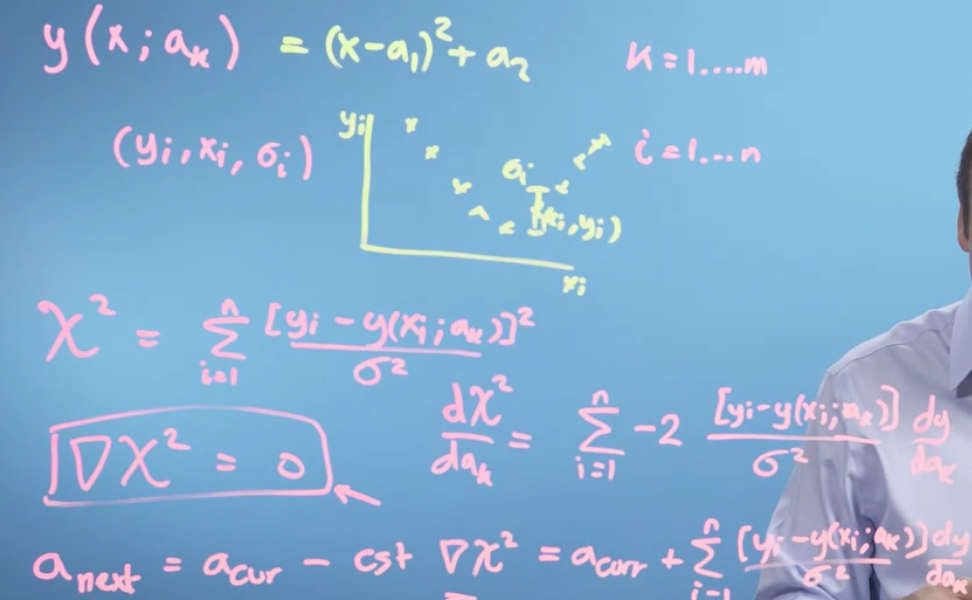 y(x; aₖ) = (x-a₁)² + a₂ K=1....m
(yᵢ, xᵢ, σᵢ) yᵢ i=1...n
σᵢ
(xᵢ, yᵢ)
xᵢ
χ² = Σᵢ₌₁ⁿ [yᵢ - y(xᵢ; aₖ)]² / σ²
∇χ² = 0 dχ²/daₖ = Σᵢ₌₁ⁿ -2 [yᵢ - y(xᵢ; aₖ)] / σ² dy/daₖ
a_next = a_cur - cst ∇χ² = a_curr + Σᵢ₌₁ⁿ [yᵢ - y(xᵢ; aₖ)] / σ² dy/daₖ